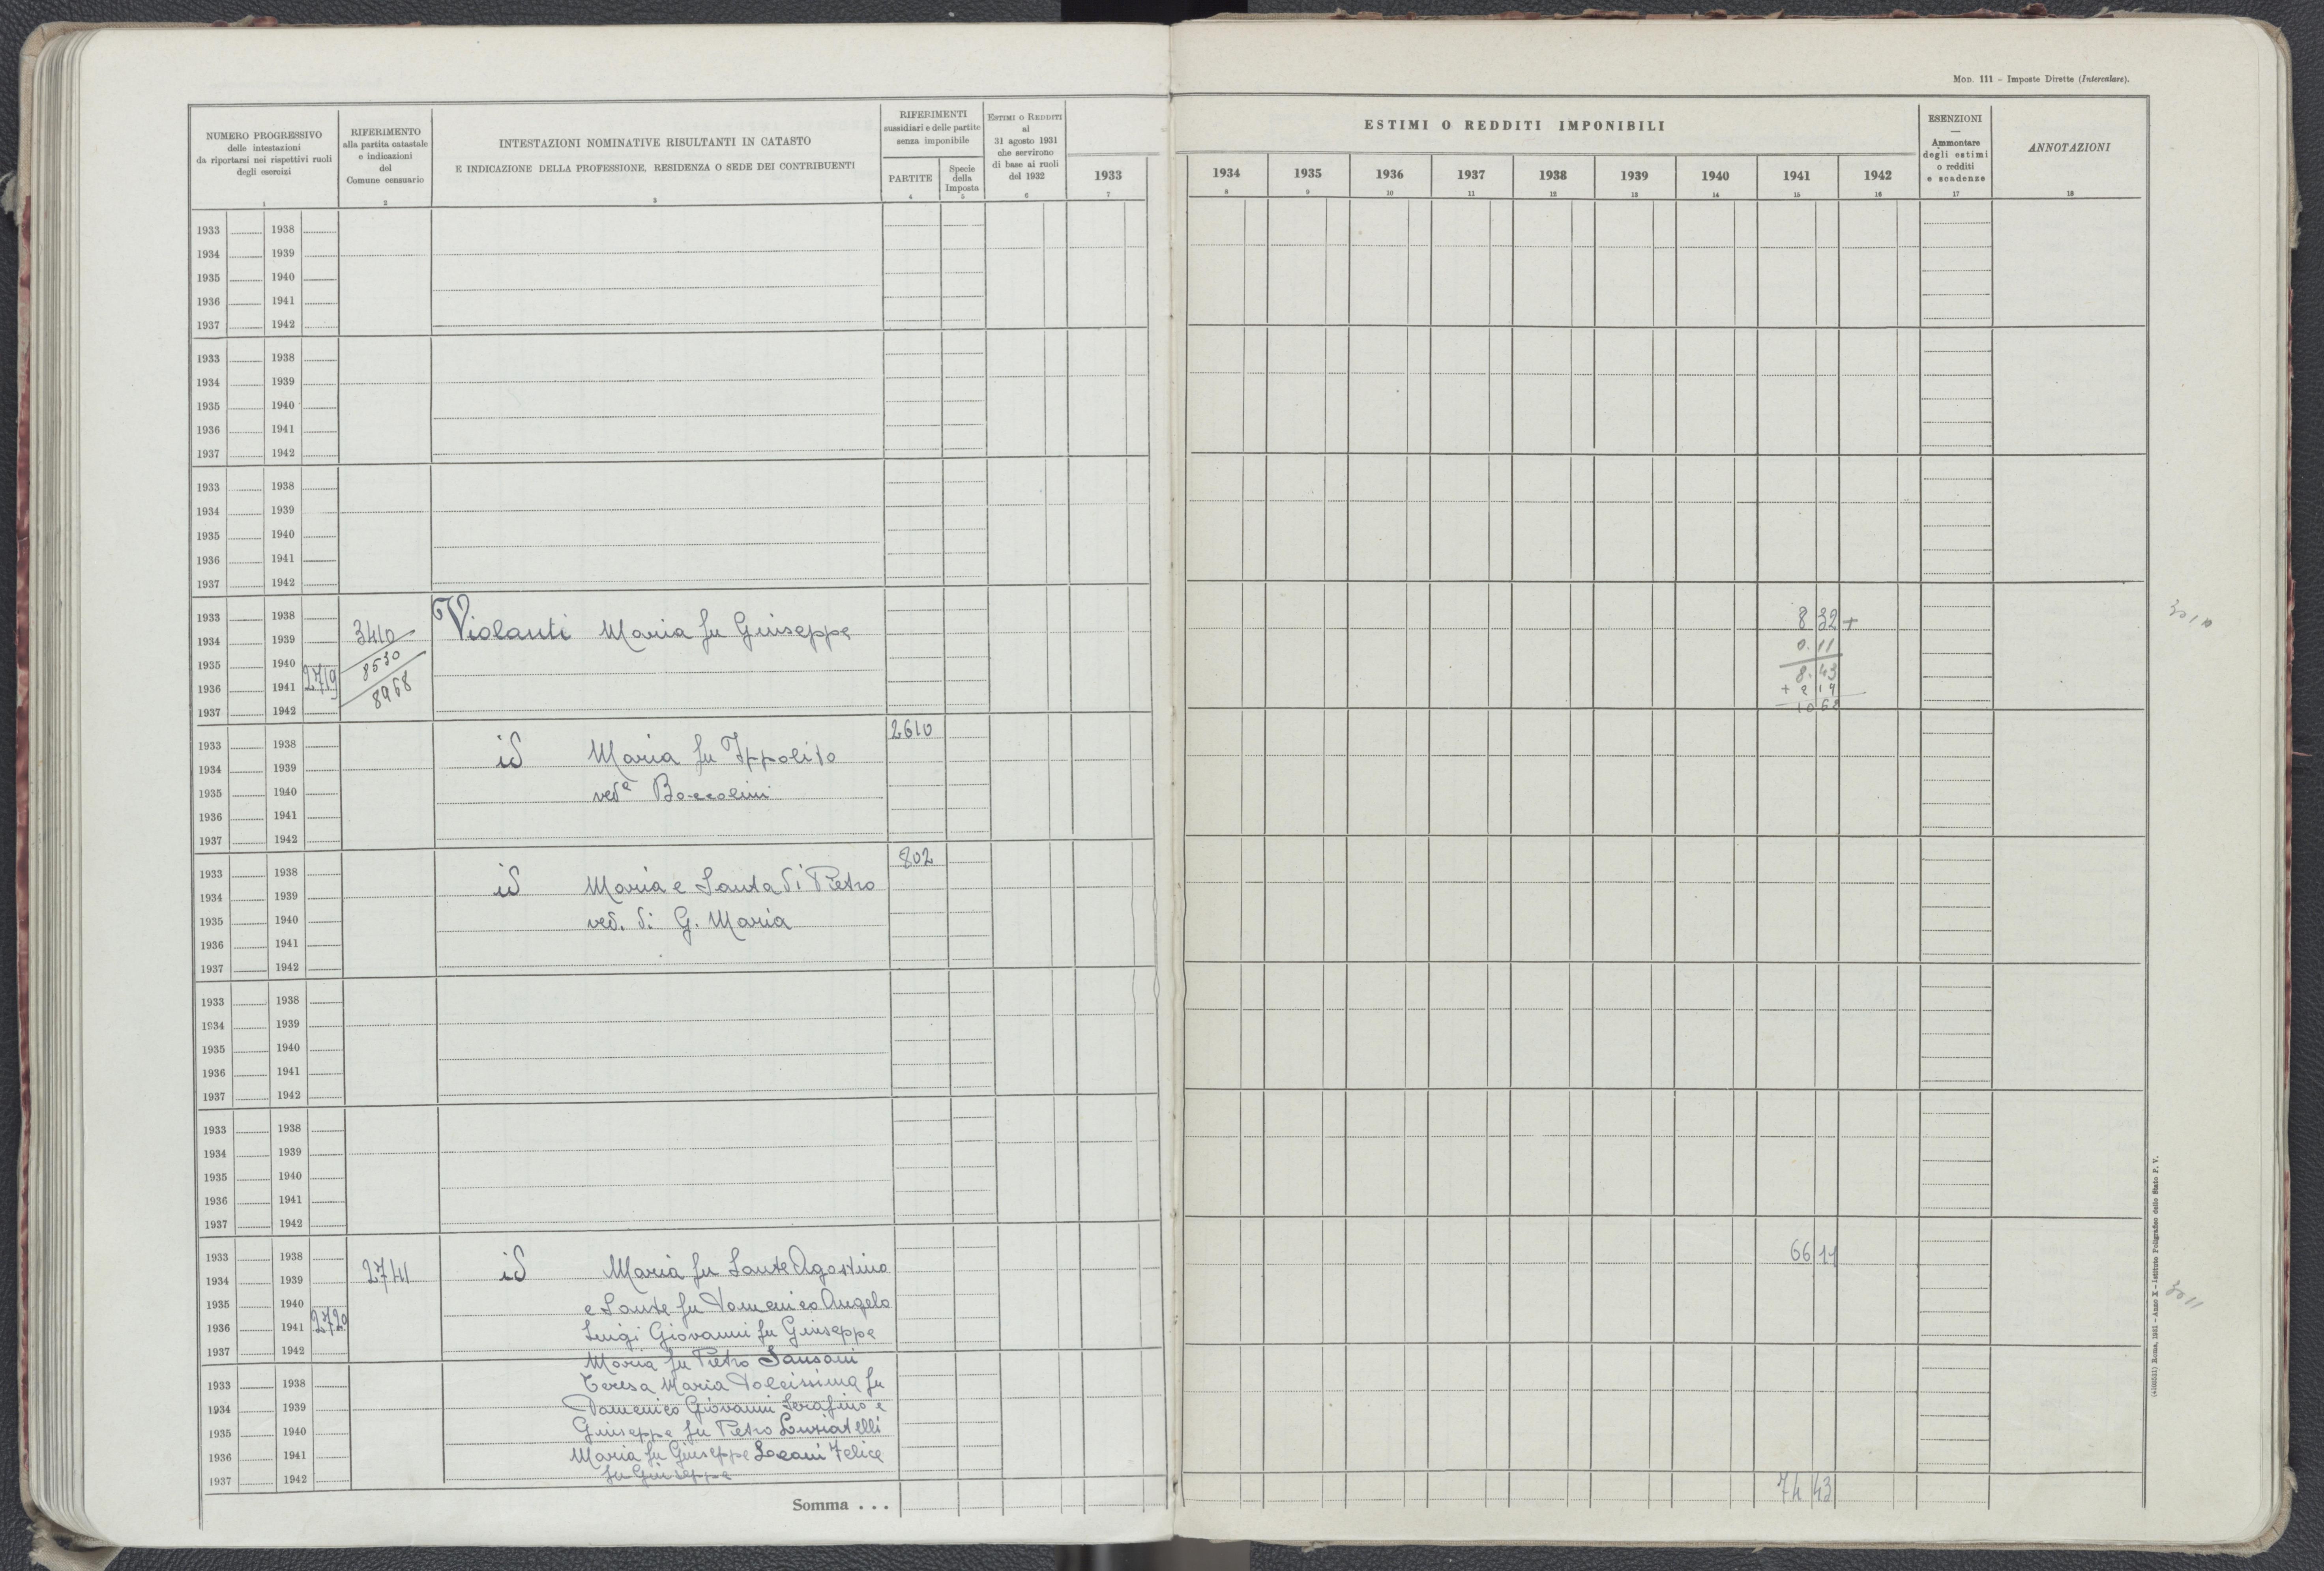 Mod. 111 – Imposte Dirette (Intercalare).
NUMERO PROGRESSIVO
delle intestazioni
da riportarsi nei rispettivi ruoli
degli esercizi
1
RIFERIMENTO
alla partita catastale
e indicazioni
del
Comune censuario
2
INTESTAZIONI NOMINATIVE RISULTANTI IN CATASTO
E INDICAZIONE DELLA PROFESSIONE, RESIDENZA O SEDE DEI CONTRIBUENTI
3
RIFERIMENTI
sussidiari e delle partite
senza imponibile
PARTITE
4
Specie
della
Imposta
5
Estimi o Redditi
al
31 agosto 1931
che servirono
di base ai ruoli
del 1932
6
ESTIMI O REDDITI IMPONIBILI
1933 1934 1935 1936 1937 1938 1939 1940 1941 1942
7 8 9 10 11 12 13 14 15 16
ESENZIONI
—
Ammontare
degli estimi
o redditi
e scadenze
17
ANNOTAZIONI
18
1933 1938
1934 1939
1935 1940
1936 1941
1937 1942
1933 1938
1934 1939
1935 1940
1936 1941
1937 1942
1933 1938
1934 1939
1935 1940
1936 1941
1937 1942
1933 1938 8 32 +
1934 1939 3410 Violanti Maria fu Giuseppe
0.11
1935 1940 8530
8.43
1936 1941 2719 8968
+ 2 19
1937 1942
10 62
2610
1933 1938 id Maria fu Ippolito
1934 1939
1935 1940 ved.a Boccolini
1936 1941
1937 1942
802
1933 1938
1934 1939 id Maria e Santa di Pietro
1935 1940 ved. di G. Maria
1936 1941
1937 1942
1933 1938
1934 1939
1935 1940
1936 1941
1937 1942
1933 1938
1934 1939
1935 1940
1936 1941
1937 1942
1933 1938 66 11
1934 1939 2741 id Maria fu Sante Agostino
1935 1940 e Sante fu Domenico Angelo
1936 1941 2720 Luigi Giovanni fu Giuseppe
1937 1942
Maria fu Pietro Sansoni
1933 1938 Teresa Maria Dolcissima fu
1934 1939 Domenico Giovanni Serafino e
1935 1940 Giuseppe fu Pietro Lunziatelli
1936 1941 Maria fu Giuseppe Locani Felice
1937 1942 fu Giuseppe
Somma . . . 74 43
Roma, 1931 – Anno X – Istituto Poligrafico dello Stato P. V.